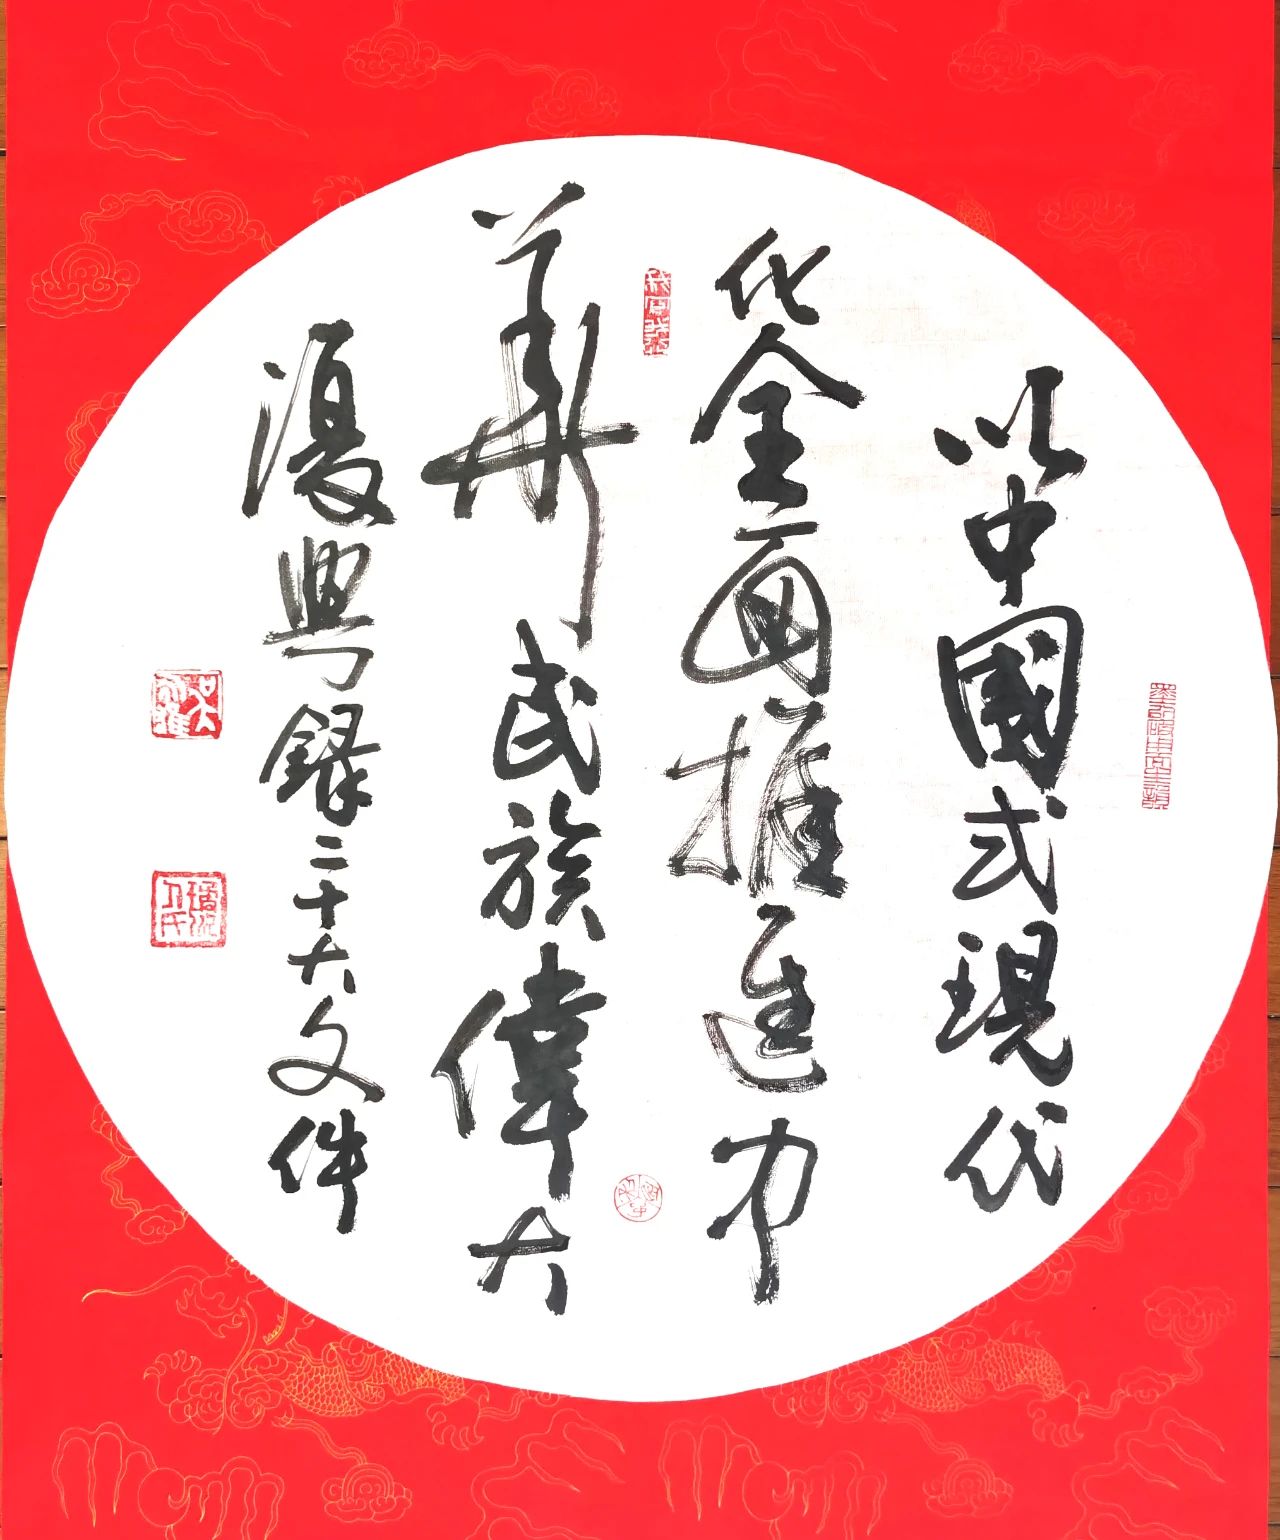 以中國式現代
化全面推進中
華民族偉大
復興 錄二十大文件